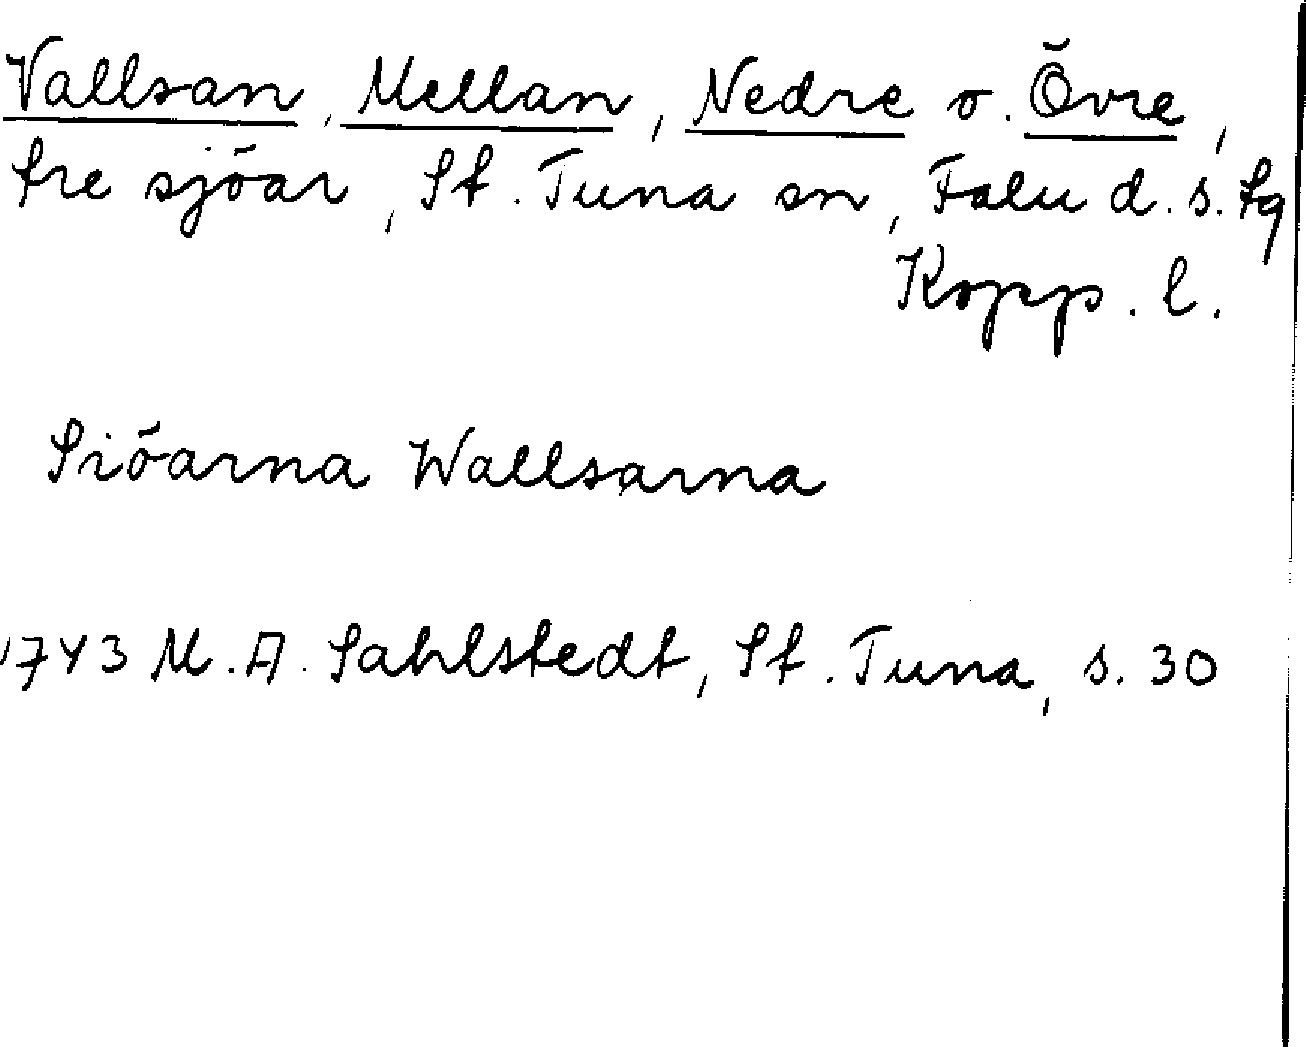 Vallsan, Mellan, Nedre o. Övre,
tre sjöar, St. Tuna sn, Falu d. s. tg
Kopp. l.
Siöarna Wallsarna
1743 M. A. Sahlstedt, St. Tuna, s. 30